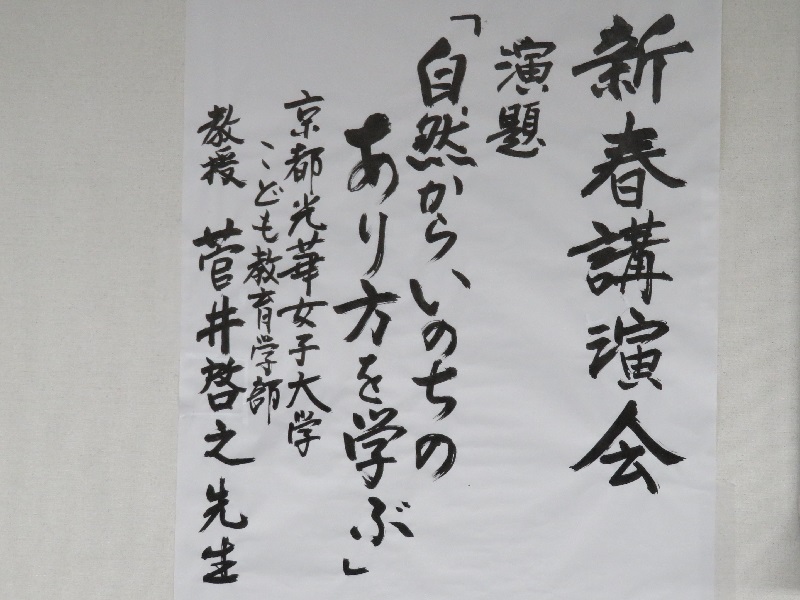 新春講演会
演題
「自然からいのちの
あり方を学ぶ」
京都光華女子大学
こども教育学部
教授 菅井啓之先生